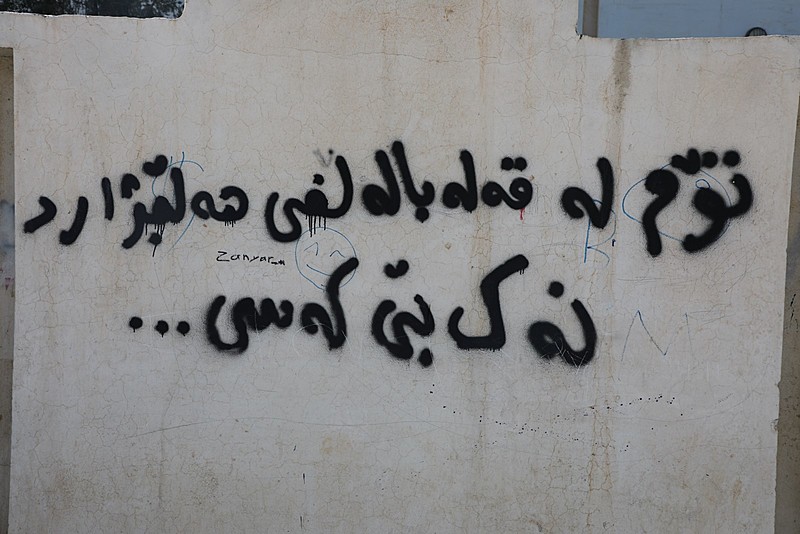 تۆم لە قەلەبالەلغی هەڵبژارد
Zanyar
نەک بێ کەسی...